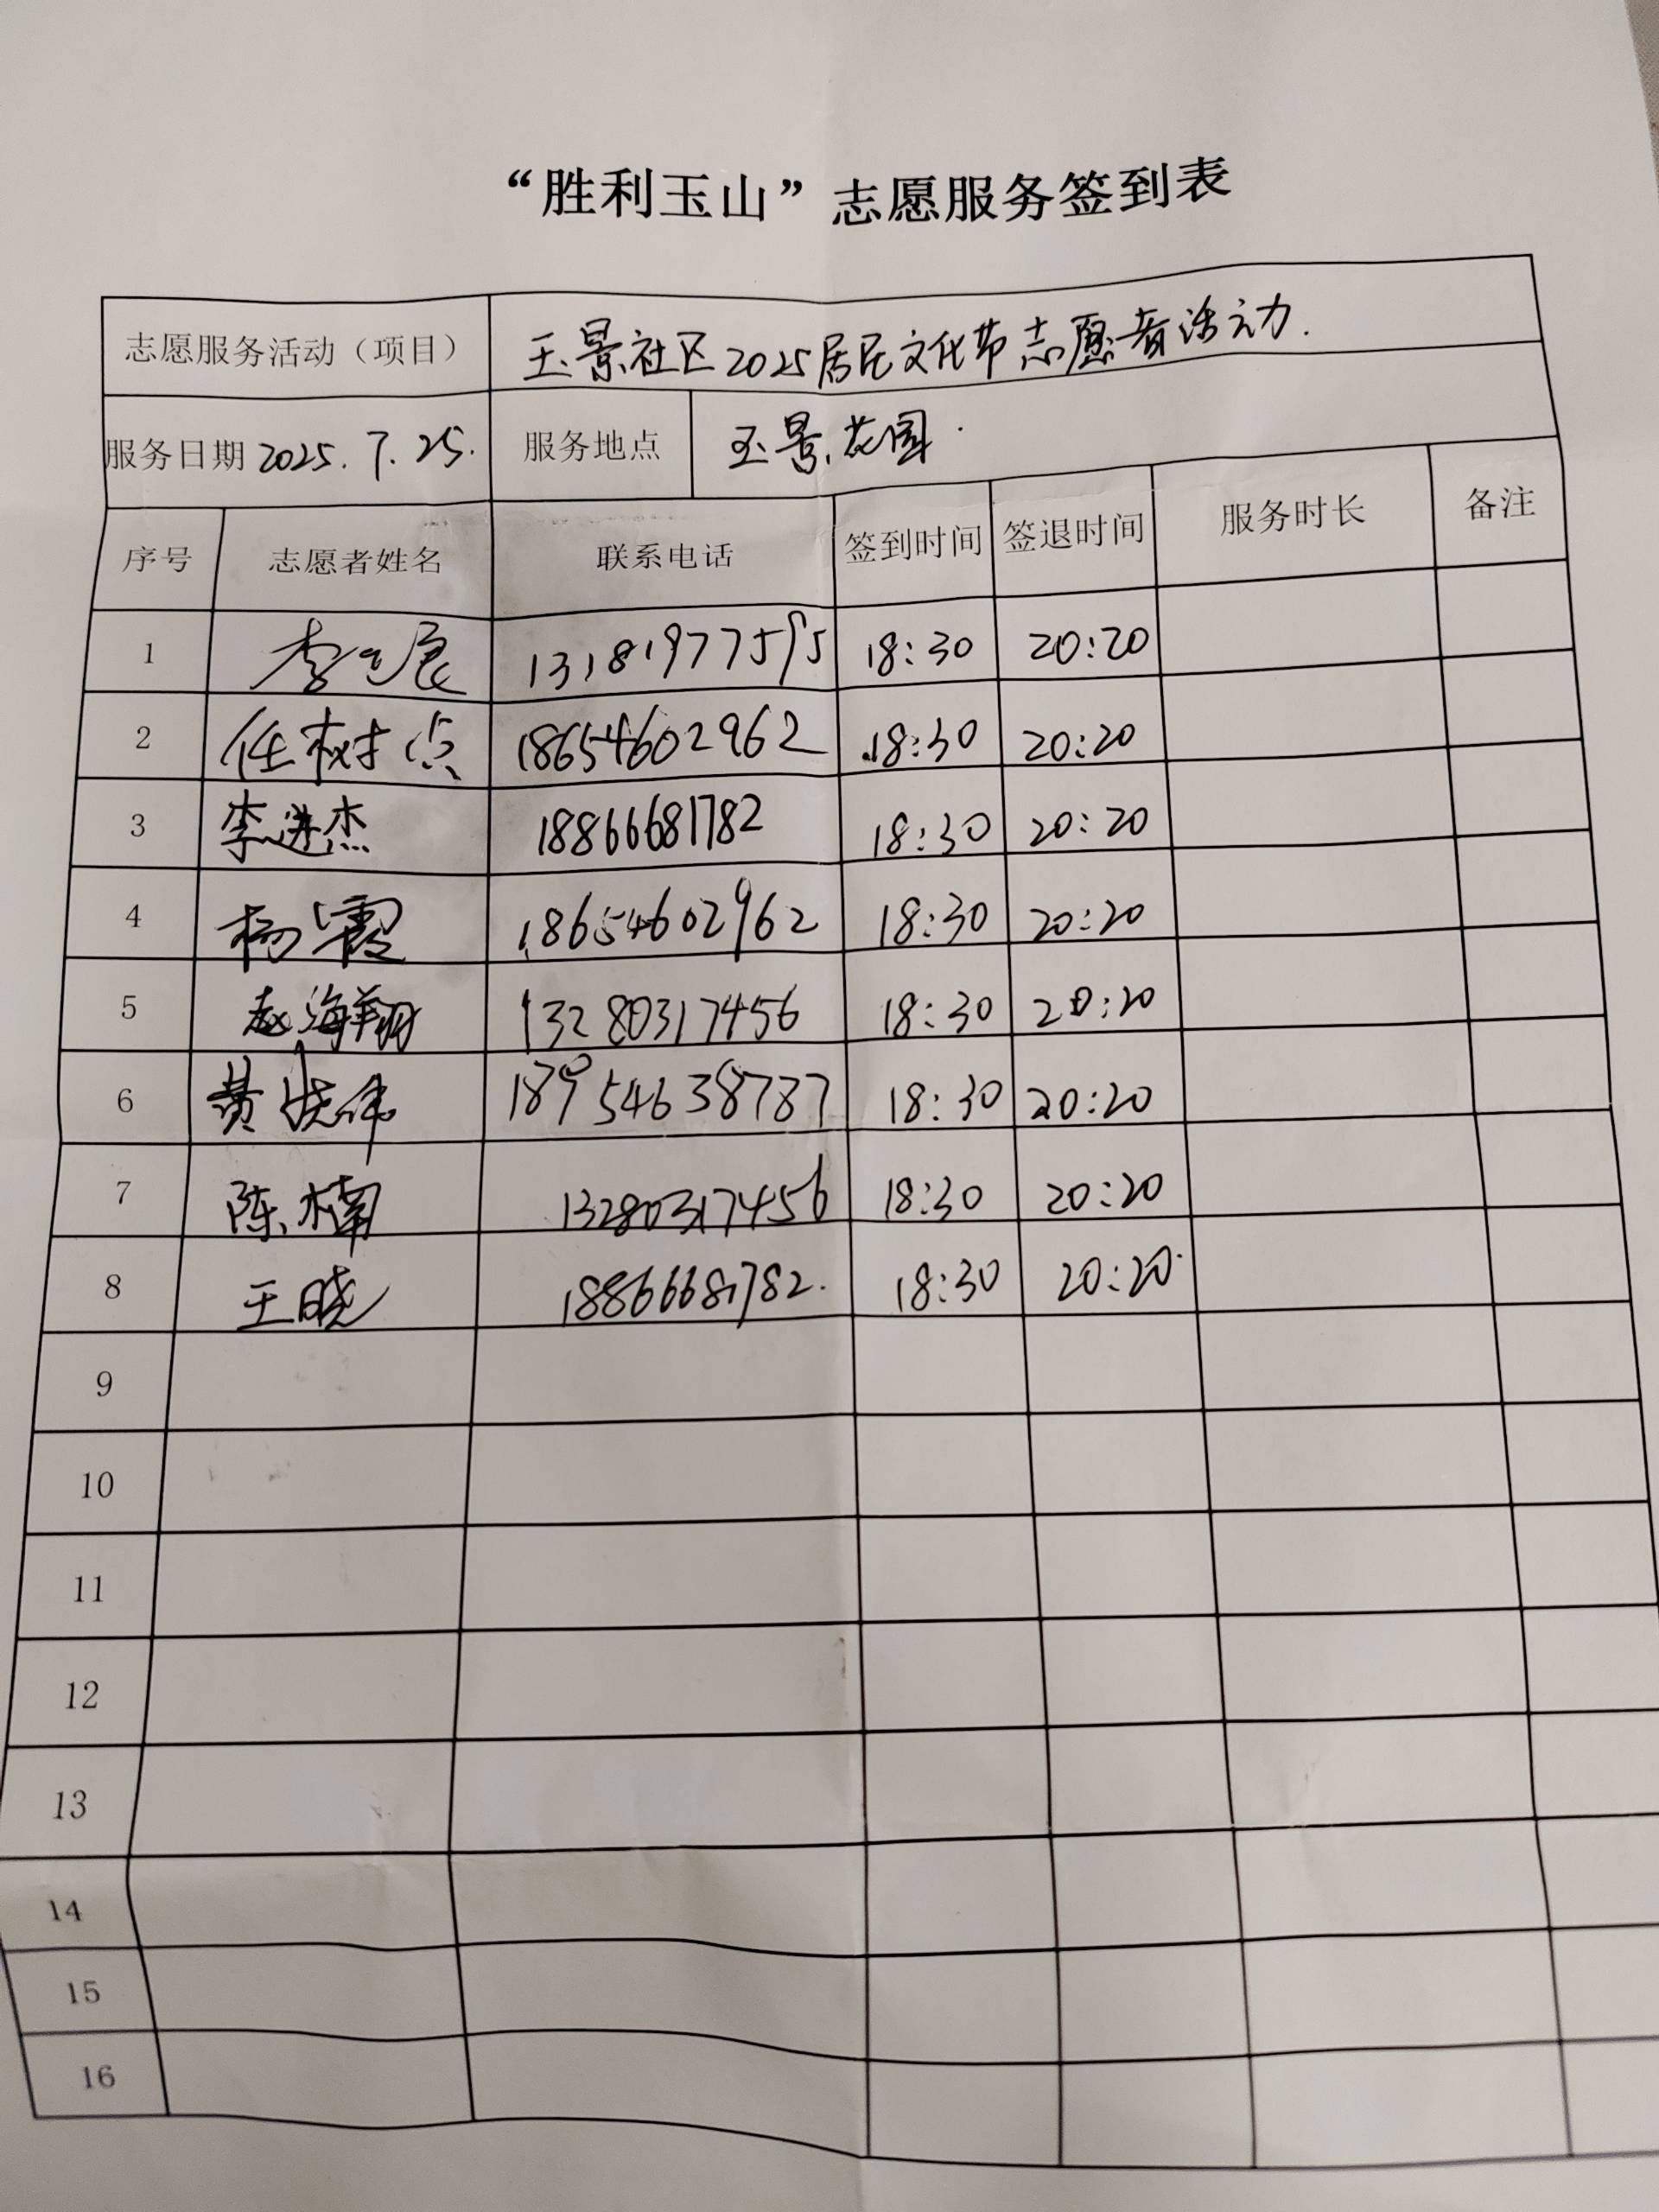 “胜利玉山”志愿服务签到表
志愿服务活动（项目） 玉景社区2025居民文化节志愿者活动.
服务日期 2025.7.25. 服务地点 玉景花园.
序号 志愿者姓名 联系电话 签到时间 签退时间 服务时长 备注
1 13181977595 18:30 20:20
2 任树点 18654602962 18:30 20:20
3 李进杰 18866681782 18:30 20:20
4 杨霞 18654602962 18:30 20:20
5 赵海翔 13280317456 18:30 20:20
6 黄晓伟 18954638787 18:30 20:20
7 陈楠 13280317456 18:30 20:20
8 王晓 18866681782. 18:30 20:20
9
10
11
12
13
14
15
16